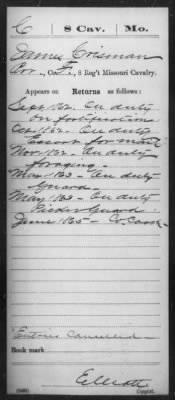 C | 8 Cav. | Mo.
James Crisman
Co. E, 8 Reg't Missouri Cavalry.
Appears on Returns as follows:
Sept 1862. On duty
on fortifications
Oct 1862. On duty
Escort for mail
Nov 1862 - On duty
foraging -
Mar 1863 - On duty
Guard -
May 1863 - On duty
Picket Guard -
June 1865 - Co. Cook
"Entries Cancelled -
Book mark
Elliott
(546) Copyist.